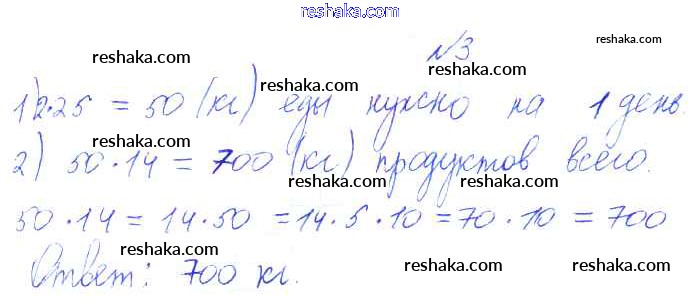 reshaka.com
reshaka.com №3 reshaka.com
reshaka.com
1) 2·25 = 50 (кг) еды нужно на 1 день.
reshaka.com reshaka.com
2) 50·14 = 700 (кг) продуктов всего.
reshaka.com reshaka.com
50·14 = 14·50 = 14·5·10 = 70·10 = 700
reshaka.com reshaka.com reshaka.com
Ответ: 700 кг.